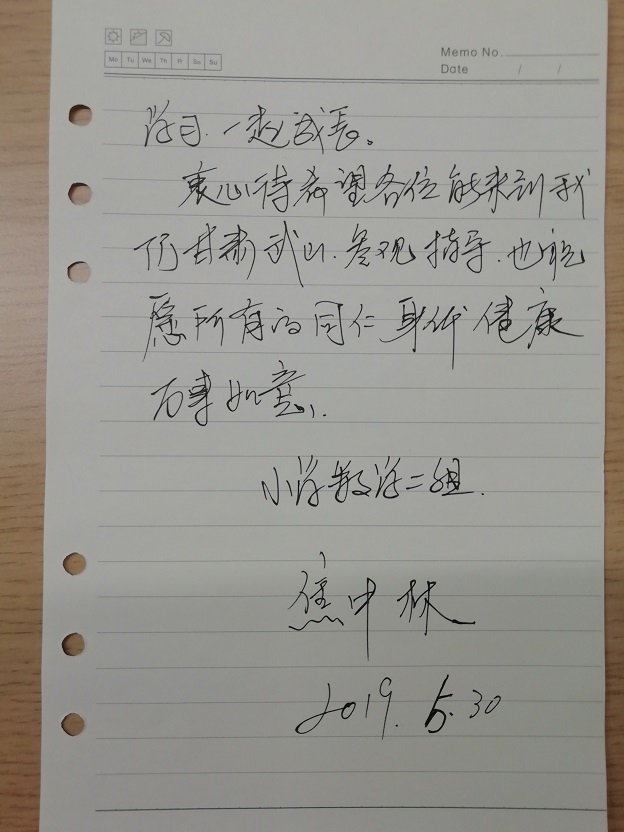 Memo No.
Mo Tu We Th Fr Sa Su
Date / /
学习.一起成长。
衷心待希望各位能来到我
们甘肃武山.参观指导.也祝
愿所有的同仁身体健康
万事如意.
小学数学二组.
焦中林
2019.5.30